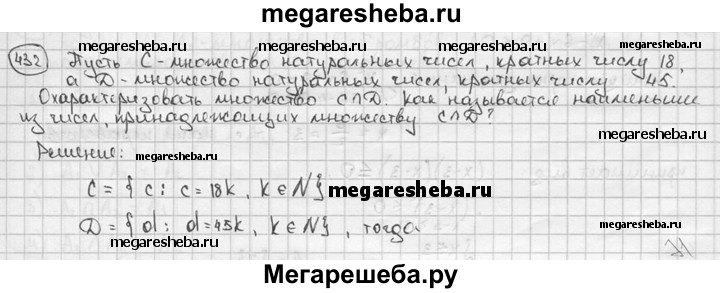 megaresheba.ru
432 Пусть C - множество натуральных чисел, кратных числу 18,
megaresheba.ru megaresheba.ru
а D - множество натуральных чисел, кратных числу 45.
Охарактеризовать множество C∩D. Как называется наименьшее
из чисел, принадлежащих множеству C∩D?
megaresheba.ru megaresheba.ru
Решение:
megaresheba.ru megaresheba.ru
C = { c : c = 18k, k ∈ N}
megaresheba.ru
D = { d : d = 45k, k ∈ N} , тогда
megaresheba.ru megaresheba.ru
Мегарешеба.ру